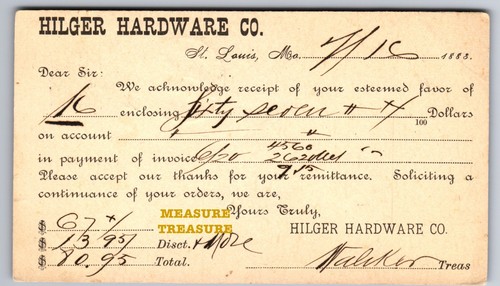 HILGER HARDWARE CO.
St. Louis, Mo. 7/16 1883.
Dear Sir:
We acknowledge receipt of your esteemed favor of
16 enclosing Sixty Seven 100 Dollars
on account
in payment of invoice 6/20 4560
2620
9.15
Please accept our thanks for your remittance. Soliciting a
continuance of your orders, we are,
Yours Truly,
HILGER HARDWARE CO.
$ 67
$ 13.95 Disct. + More
$ 80.95 Total.
Treas
MEASURE
TREASURE